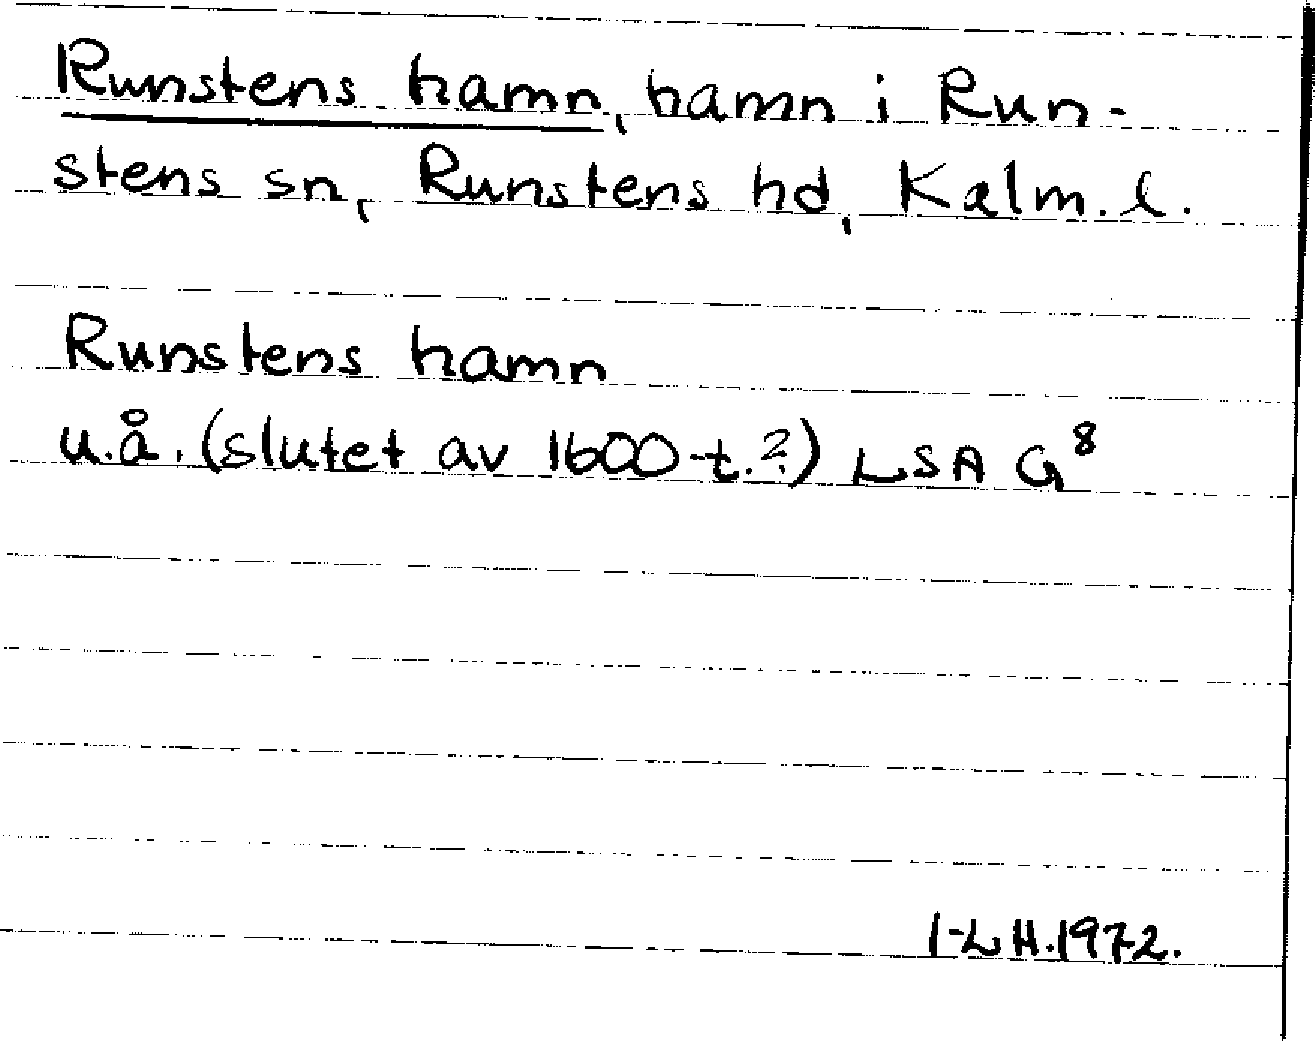 Runstens hamn, hamn i Run-
stens sn, Runstens hd, Kalm. l.
Runstens hamn
u.å. (slutet av 1600-t.?) LSA G⁸
I-L H. 1972.